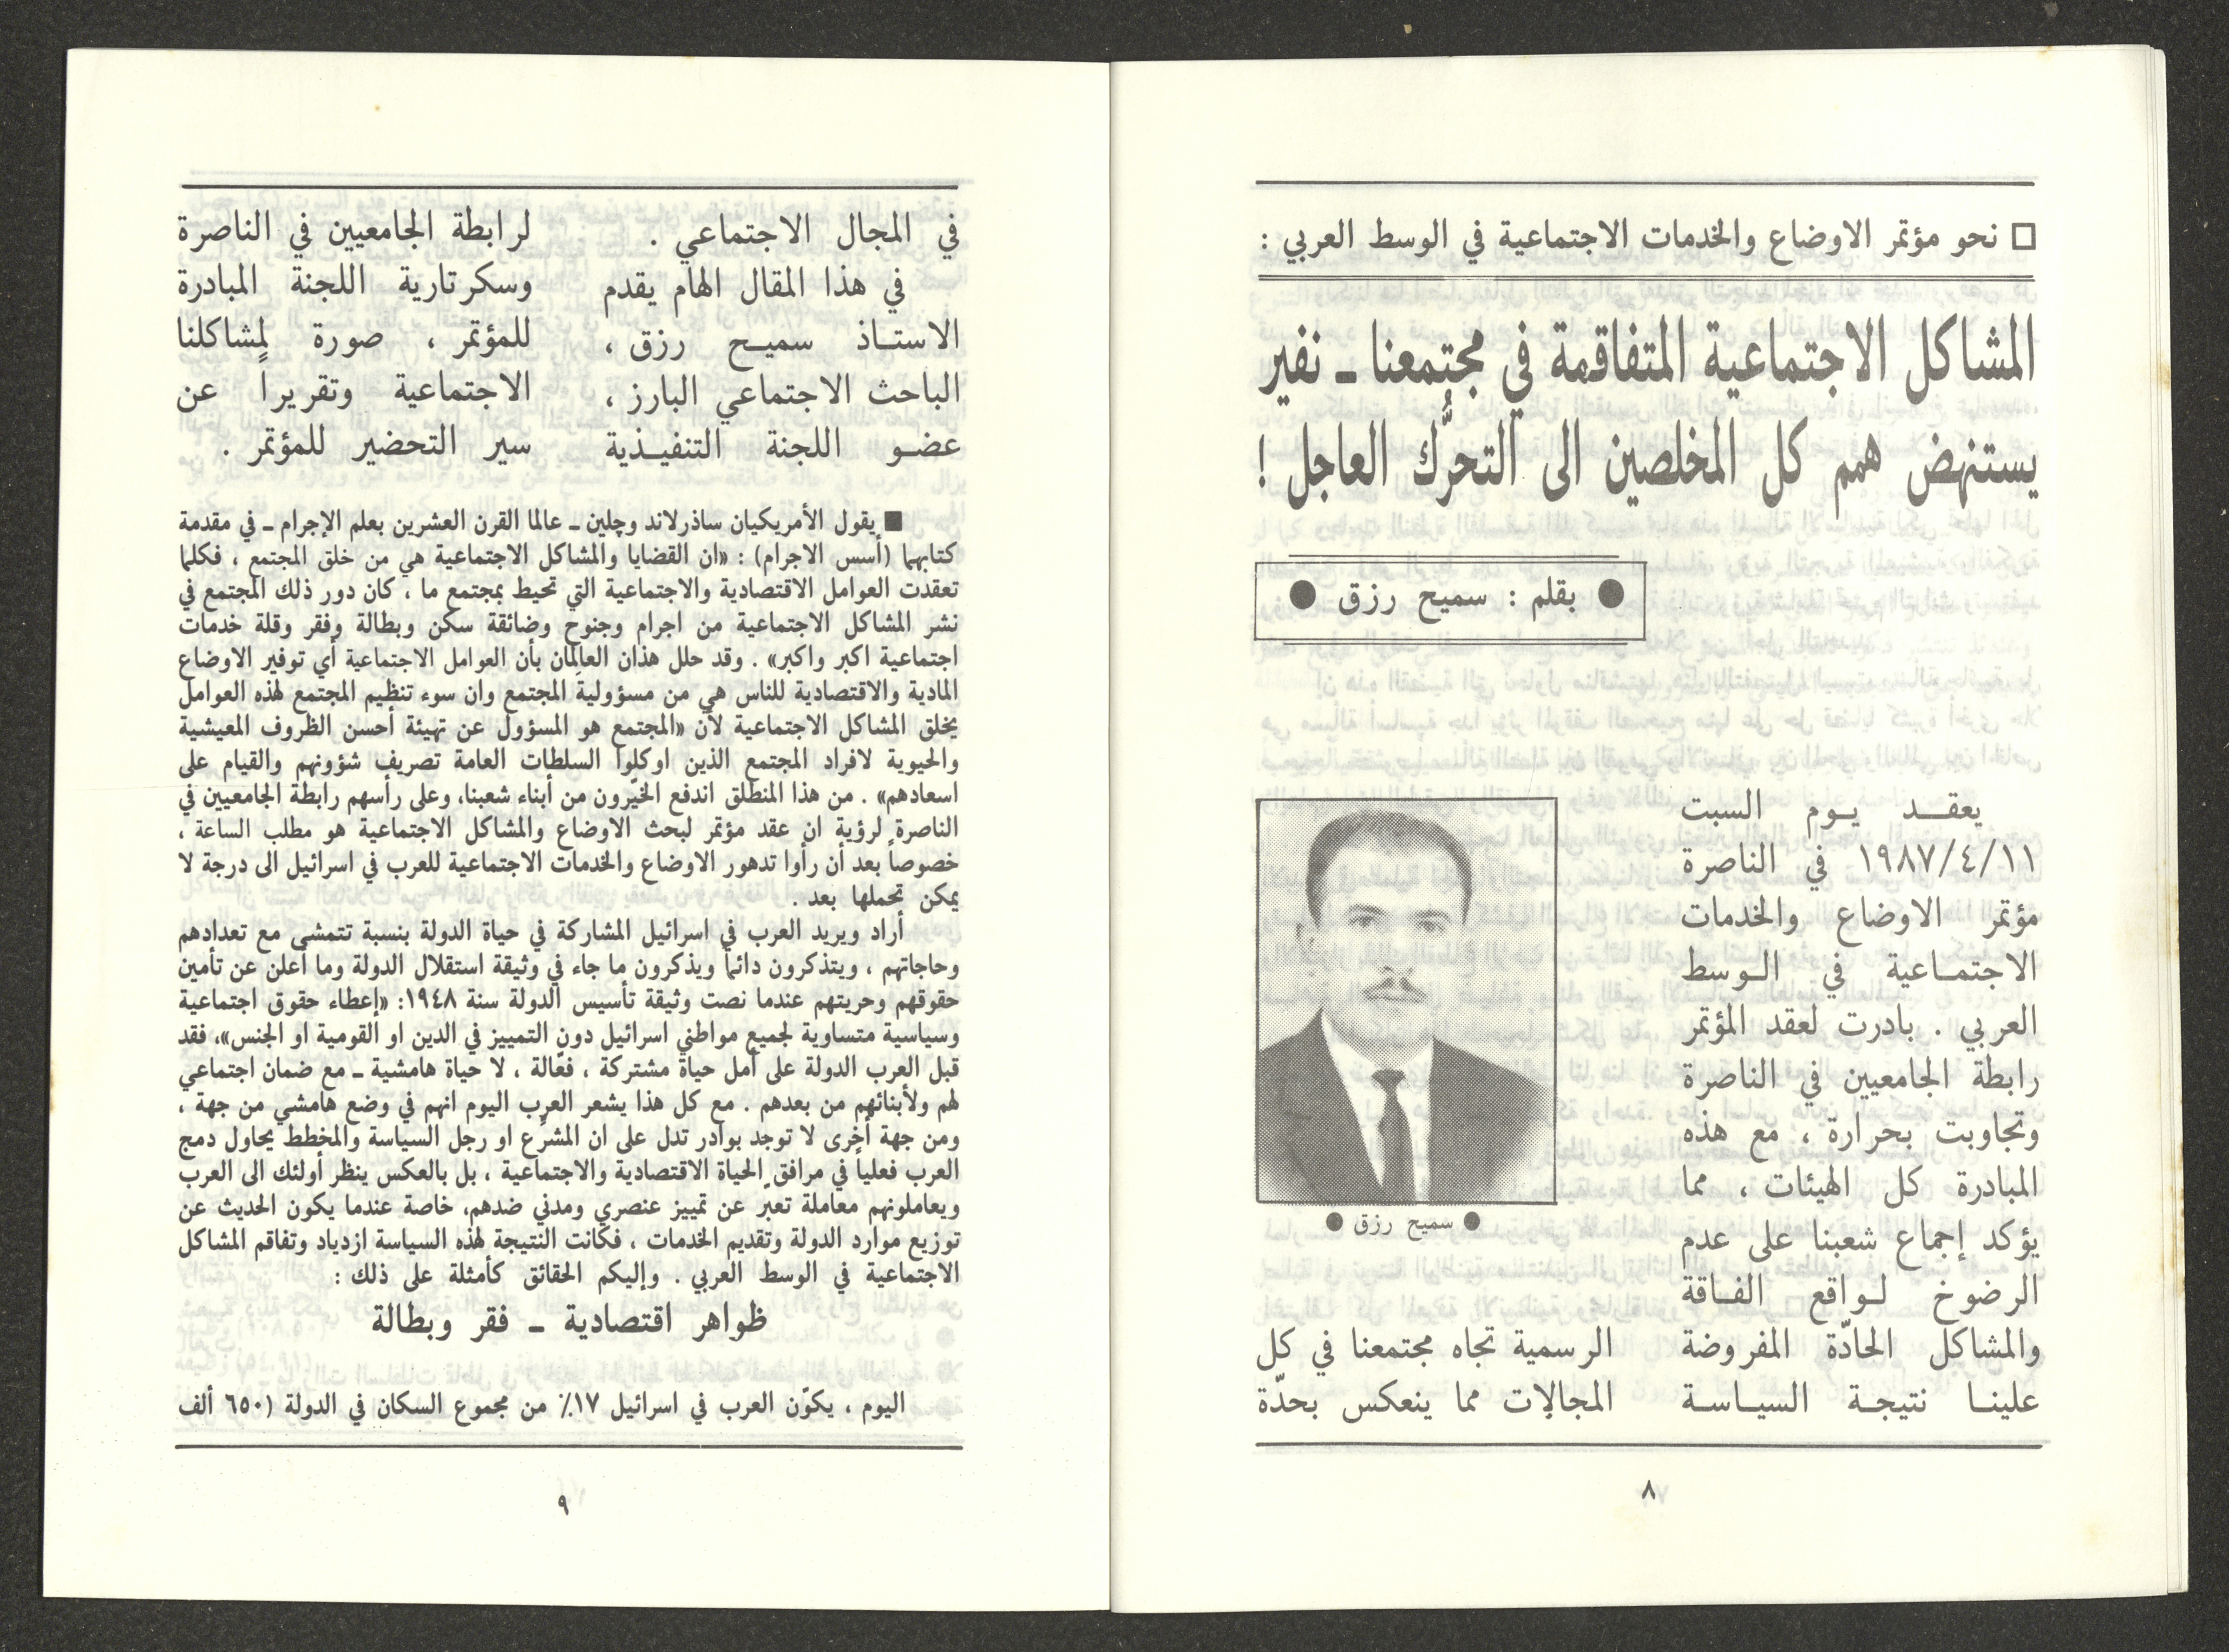 □ نحو مؤتمر الاوضاع والخدمات الاجتماعية في الوسط العربي :
المشاكل الاجتماعية المتفاقمة في مجتمعنا ـ نفير
يستنهض همم كل المخلصين الى التحرُّك العاجل !
● بقلم : سميح رزق ●
يعقد يوم السبت
١٩٨٧/٤/١١ في الناصرة
مؤتمر الاوضاع والخدمات
الاجتماعية في الوسط
العربي . بادرت لعقد المؤتمر
رابطة الجامعيين في الناصرة
وتجاوبت بحرارة ، مع هذه
المبادرة كل الهيئات ، مما
يؤكد إجماع شعبنا على عدم
الرضوخ لواقع الفاقة
والمشاكل الحادّة المفروضة
علينا نتيجة السياسة
● سميح رزق ●
الرسمية تجاه مجتمعنا في كل
المجالات مما ينعكس بحدّة
٨
في المجال الاجتماعي .
في هذا المقال الهام يقدم
الاستاذ سميح رزق ،
الباحث الاجتماعي البارز ،
عضو اللجنة التنفيذية
لرابطة الجامعيين في الناصرة
وسكرتارية اللجنة المبادرة
للمؤتمر ، صورة لمشاكلنا
الاجتماعية وتقريراً عن
سير التحضير للمؤتمر .
■ يقول الأمريكيان ساذرلاند وچلين ـ عالما القرن العشرين بعلم الإجرام ـ في مقدمة
كتابهما (أسس الاجرام) : «ان القضايا والمشاكل الاجتماعية هي من خلق المجتمع ، فكلما
تعقدت العوامل الاقتصادية والاجتماعية التي تحيط بمجتمع ما ، كان دور ذلك المجتمع في
نشر المشاكل الاجتماعية من اجرام وجنوح وضائقة سكن وبطالة وفقر وقلة خدمات
اجتماعية اكبر واكبر» . وقد حلل هذان العالِمان بأن العوامل الاجتماعية أي توفير الاوضاع
المادية والاقتصادية للناس هي من مسؤولية المجتمع وان سوء تنظيم المجتمع لهذه العوامل
يخلق المشاكل الاجتماعية لأن «المجتمع هو المسؤول عن تهيئة أحسن الظروف المعيشية
والحيوية لافراد المجتمع الذين اوكلوا السلطات العامة تصريف شؤونهم والقيام على
اسعادهم» . من هذا المنطلق اندفع الخيّرون من أبناء شعبنا، وعلى رأسهم رابطة الجامعيين في
الناصرة لرؤية ان عقد مؤتمر لبحث الاوضاع والمشاكل الاجتماعية هو مطلب الساعة ،
خصوصاً بعد أن رأوا تدهور الاوضاع والخدمات الاجتماعية للعرب في اسرائيل الى درجة لا
يمكن تحملها بعد .
أراد ويريد العرب في اسرائيل المشاركة في حياة الدولة بنسبة تتمشى مع تعدادهم
وحاجاتهم ، ويتذكرون دائماً ويذكرون ما جاء في وثيقة استقلال الدولة وما أعلن عن تأمين
حقوقهم وحريتهم عندما نصت وثيقة تأسيس الدولة سنة ١٩٤٨: «إعطاء حقوق اجتماعية
وسياسية متساوية لجميع مواطني اسرائيل دون التمييز في الدين او القومية او الجنس»، فقد
قبل العرب الدولة على أمل حياة مشتركة ، فعّالة ، لا حياة هامشية ـ مع ضمان اجتماعي
لهم ولأبنائهم من بعدهم . مع كل هذا يشعر العرب اليوم انهم في وضع هامشي من جهة ،
ومن جهة أخرى لا توجد بوادر تدل على ان المشرّع او رجل السياسة والمخطط يحاول دمج
العرب فعلياً في مرافق الحياة الاقتصادية والاجتماعية ، بل بالعكس ينظر أولئك الى العرب
ويعاملونهم معاملة تعبّر عن تمييز عنصري ومدني ضدهم، خاصة عندما يكون الحديث عن
توزيع موارد الدولة وتقديم الخدمات ، فكانت النتيجة لهذه السياسة ازدياد وتفاقم المشاكل
الاجتماعية في الوسط العربي . وإليكم الحقائق كأمثلة على ذلك :
ظواهر اقتصادية ـ فقر وبطالة
اليوم ، يكوّن العرب في اسرائيل ١٧٪ من مجموع السكان في الدولة (٦٥٠ ألف
٩